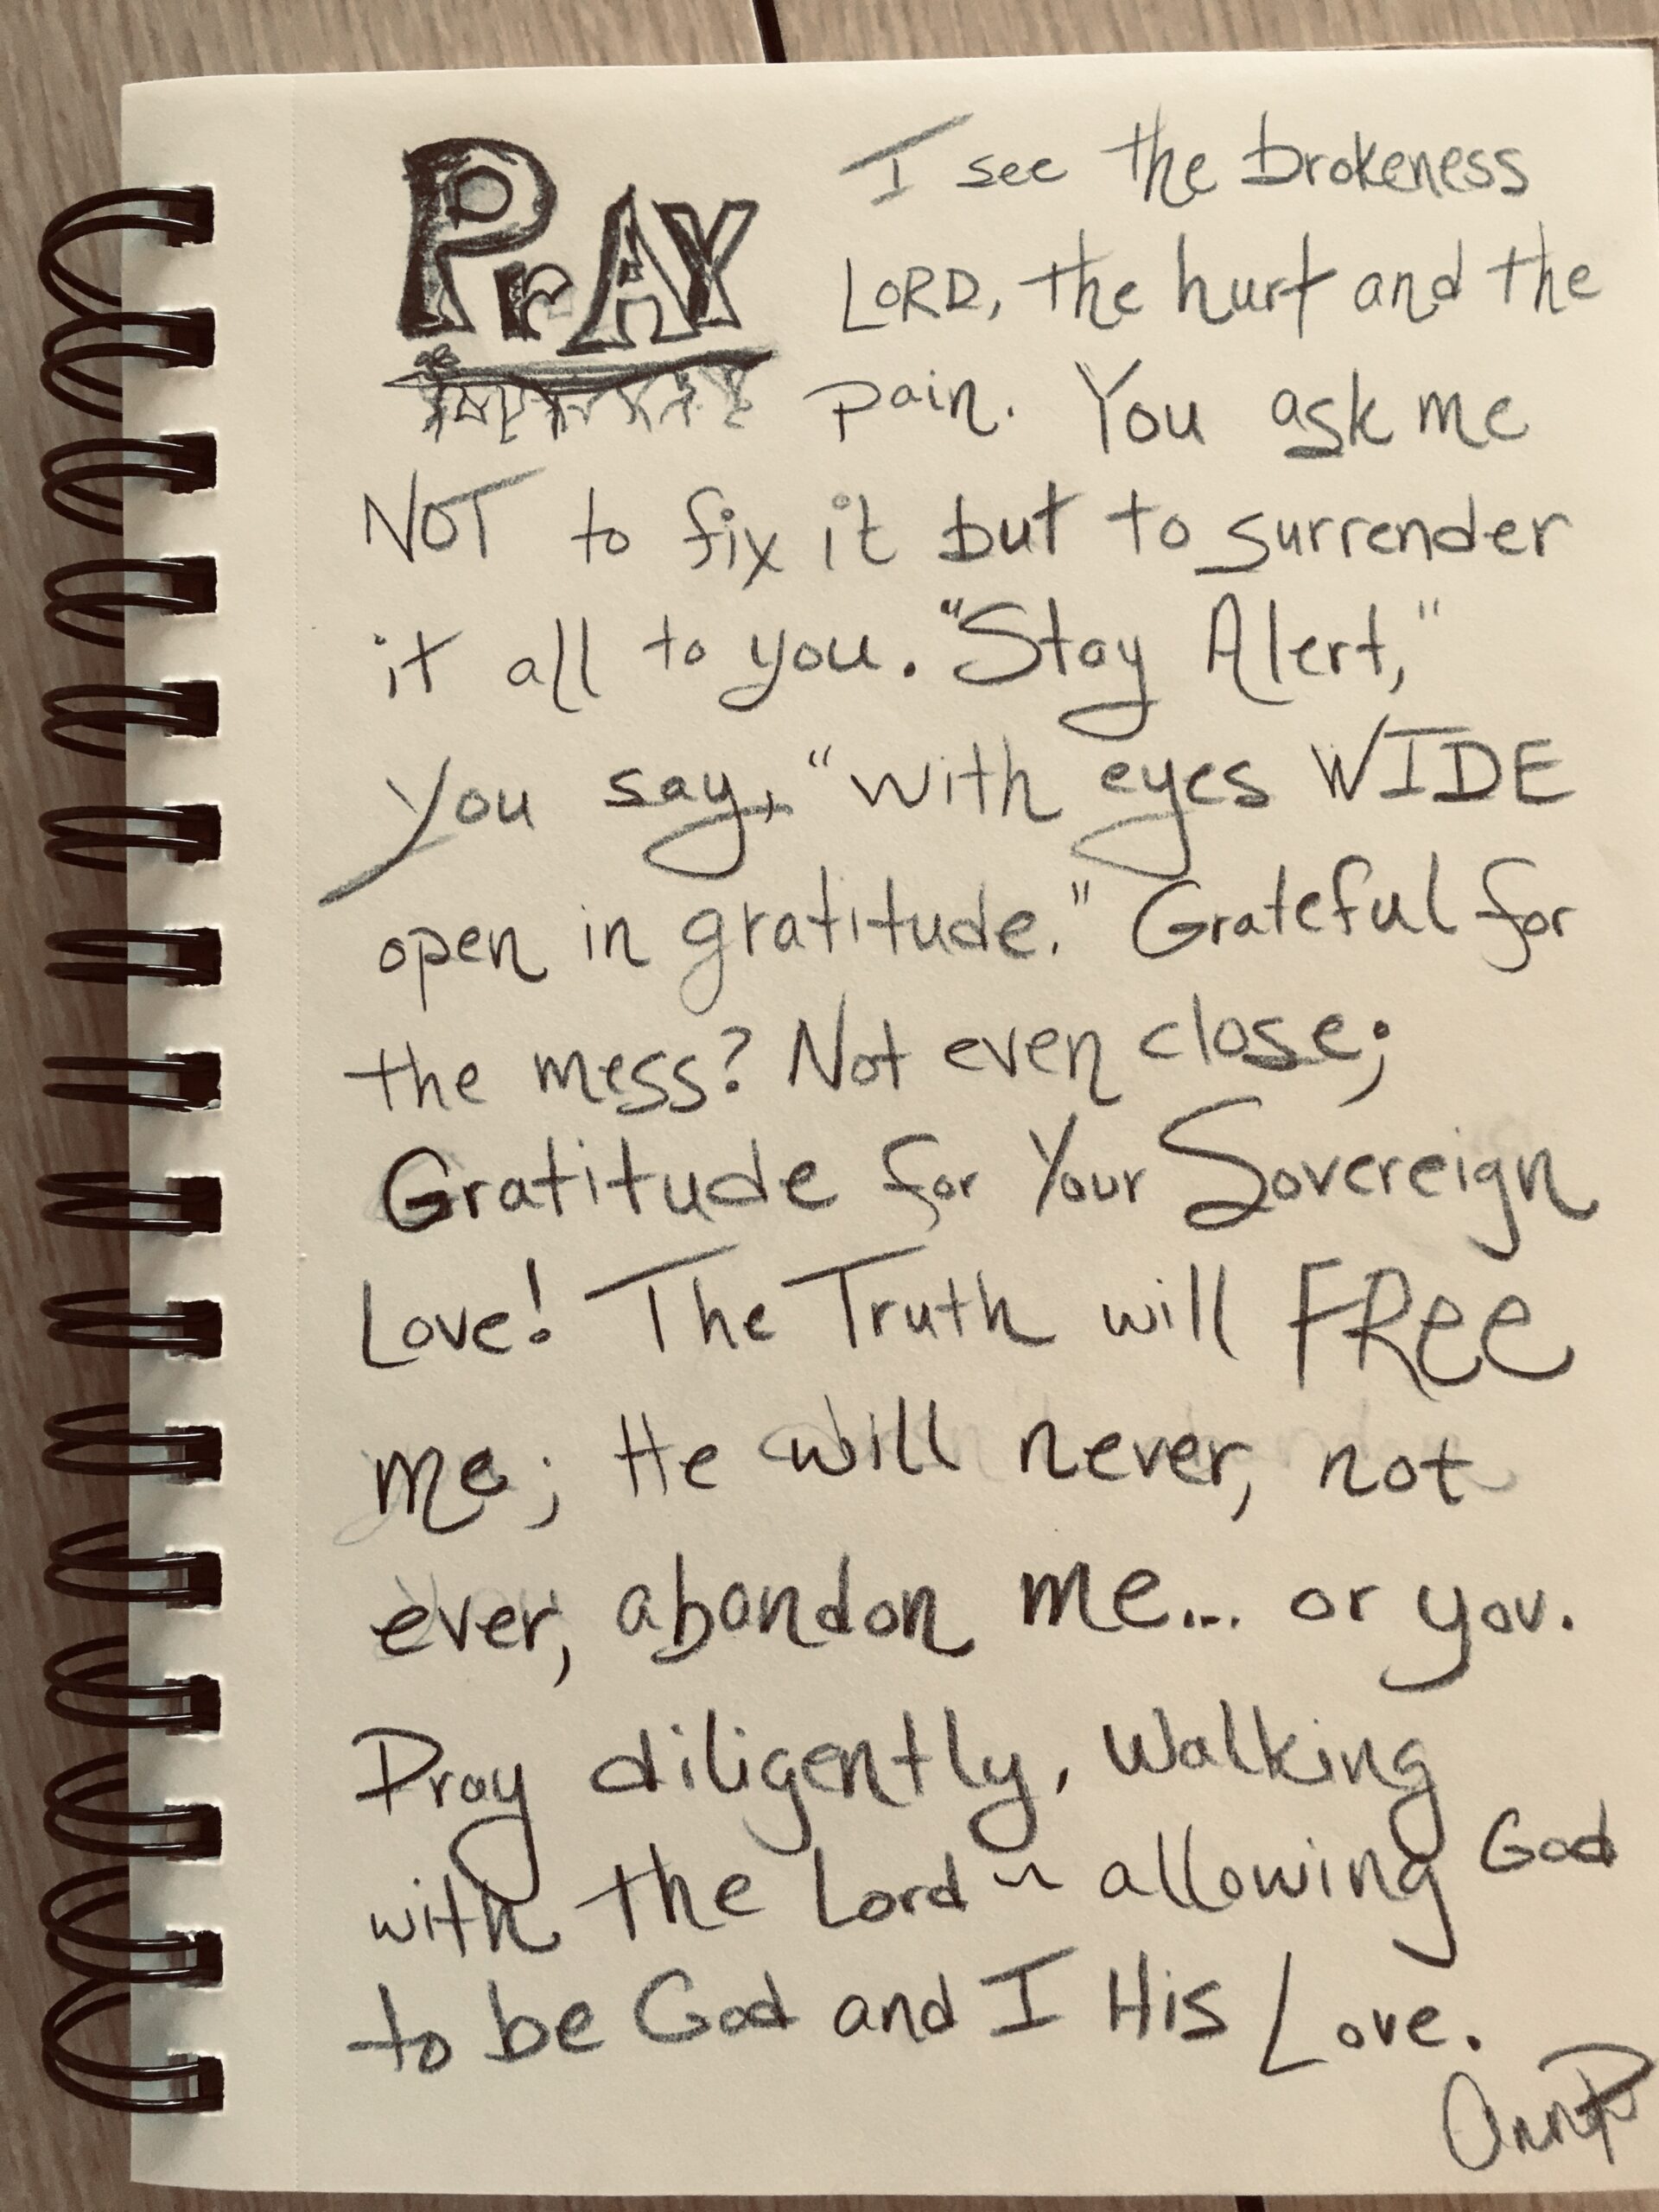 PrAY
I see the brokeness
LORD, the hurt and the
pain. You ask me
NOT to fix it but to surrender
it all to you. "Stay Alert,"
you say, "with eyes WIDE
open in gratitude." Grateful for
the mess? Not even close;
Gratitude for Your Sovereign
Love! The Truth will FRee
me; He will never, not
ever, abandon me... or you.
Pray diligently, Walking
with the Lord ~ allowing God
to be God and I His Love.
AnnP